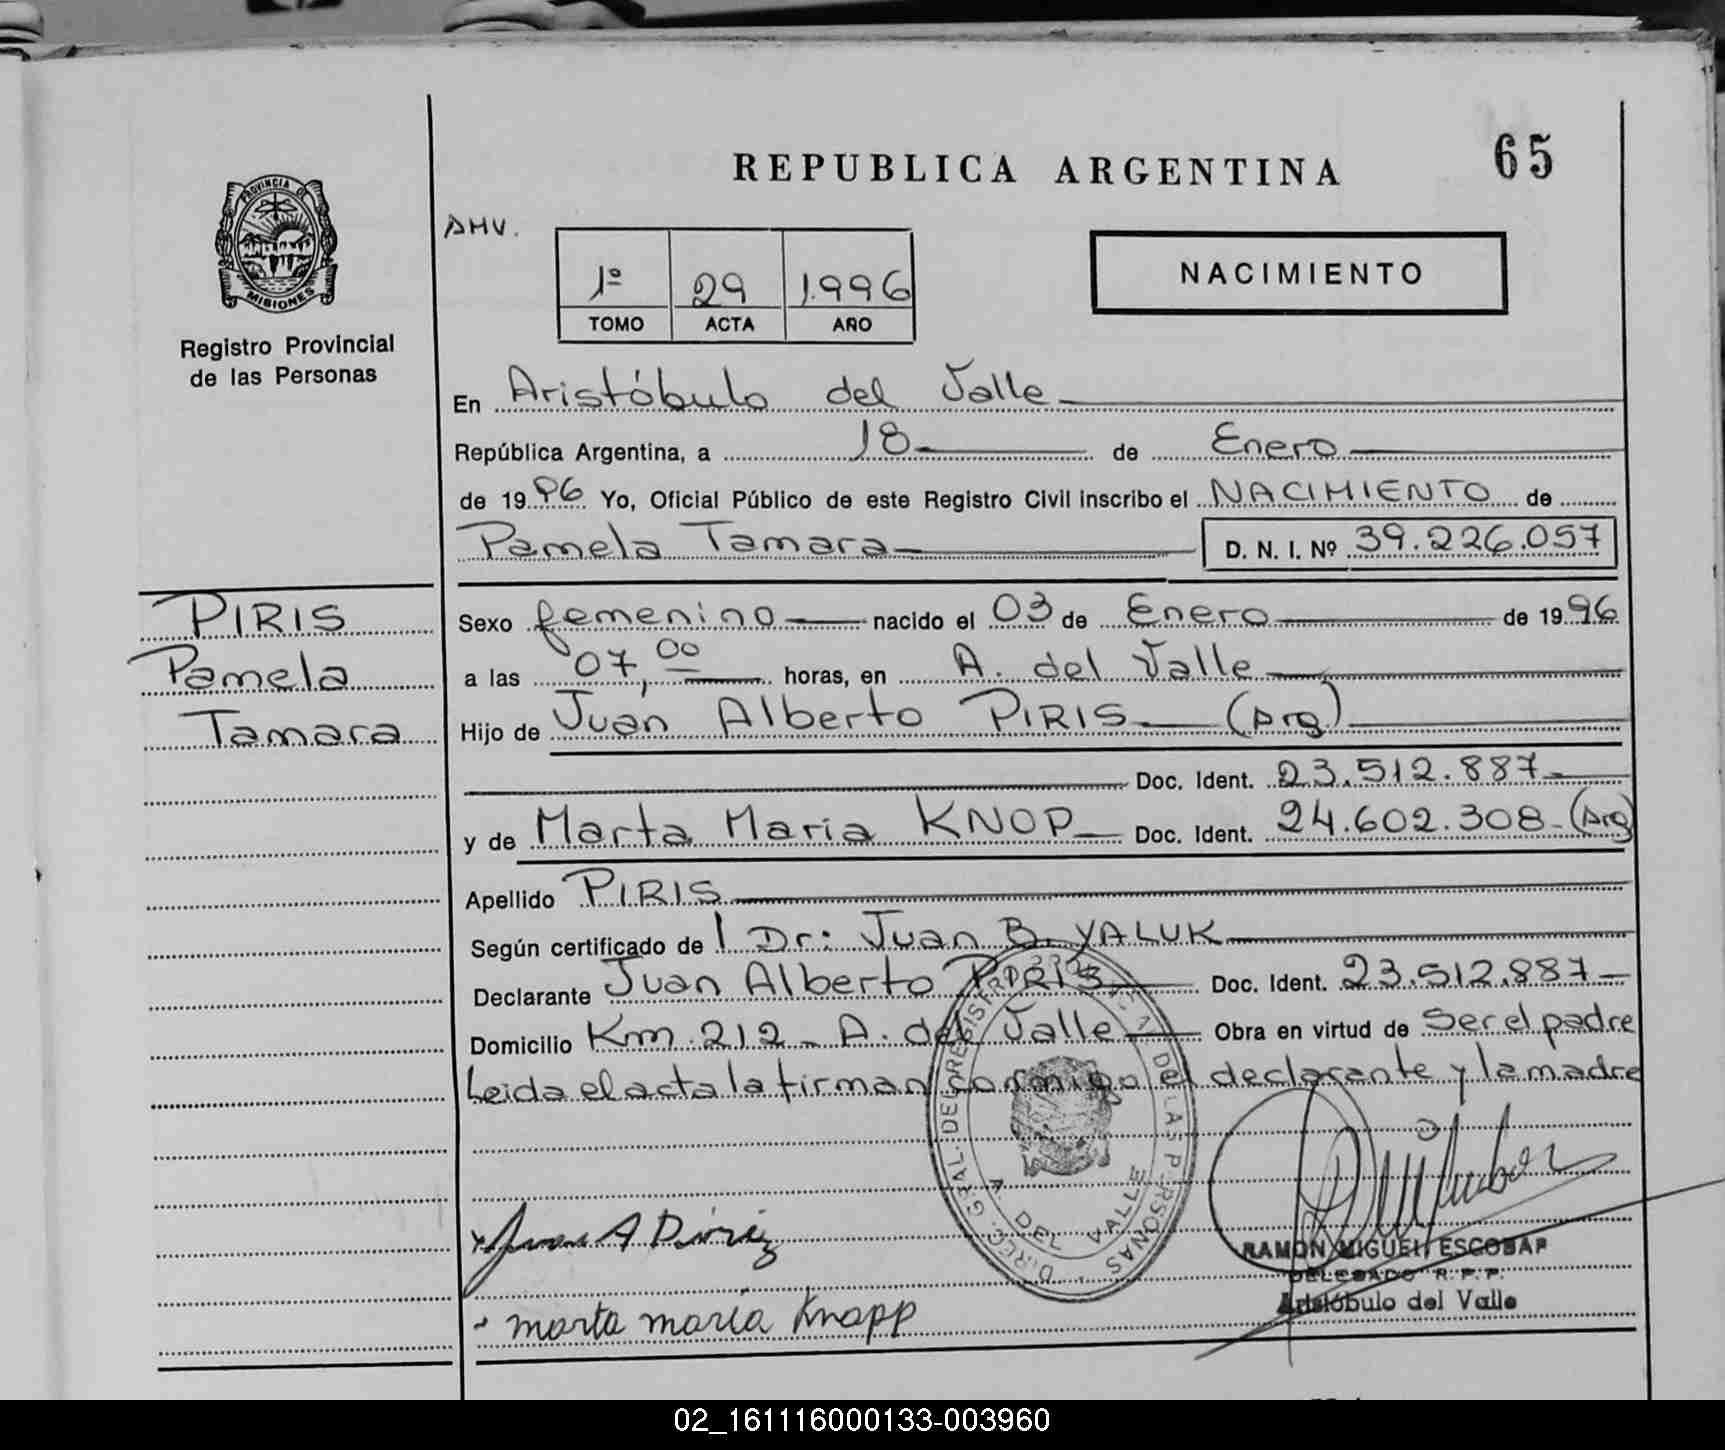 REPUBLICA ARGENTINA
65
PROVINCIA DE
MISIONES
Registro Provincial
de las Personas
AMV.
1º 29 1.996
TOMO ACTA AÑO
NACIMIENTO
En Aristóbulo del Valle
República Argentina, a 18 de Enero
de 1996 Yo, Oficial Público de este Registro Civil inscribo el NACIMIENTO de
Pamela Tamara D. N. I. Nº 39.226.057
PIRIS
Pamela
Tamara
Sexo femenino nacido el 03 de Enero de 1996
a las 07,00 horas, en A. del Valle
Hijo de Juan Alberto PIRIS (Arg)
Doc. Ident. 23.512.887
y de Marta Maria KNOP Doc. Ident. 24.602.308 (Arg)
Apellido PIRIS
Según certificado de l Dr: Juan B. YALUK
Declarante Juan Alberto PIRIS Doc. Ident. 23.512.887
Domicilio Km 212 - A. del Valle Obra en virtud de Ser el padre
Leida el acta la firman conmigo el declarante y la madre
A. DEL VALLE
Juan A
RAMON MIGUEL ESCOBAR
DELEGADO R.P.P.
Aristóbulo del Valle
marta maria Knapp
02_161116000133-003960